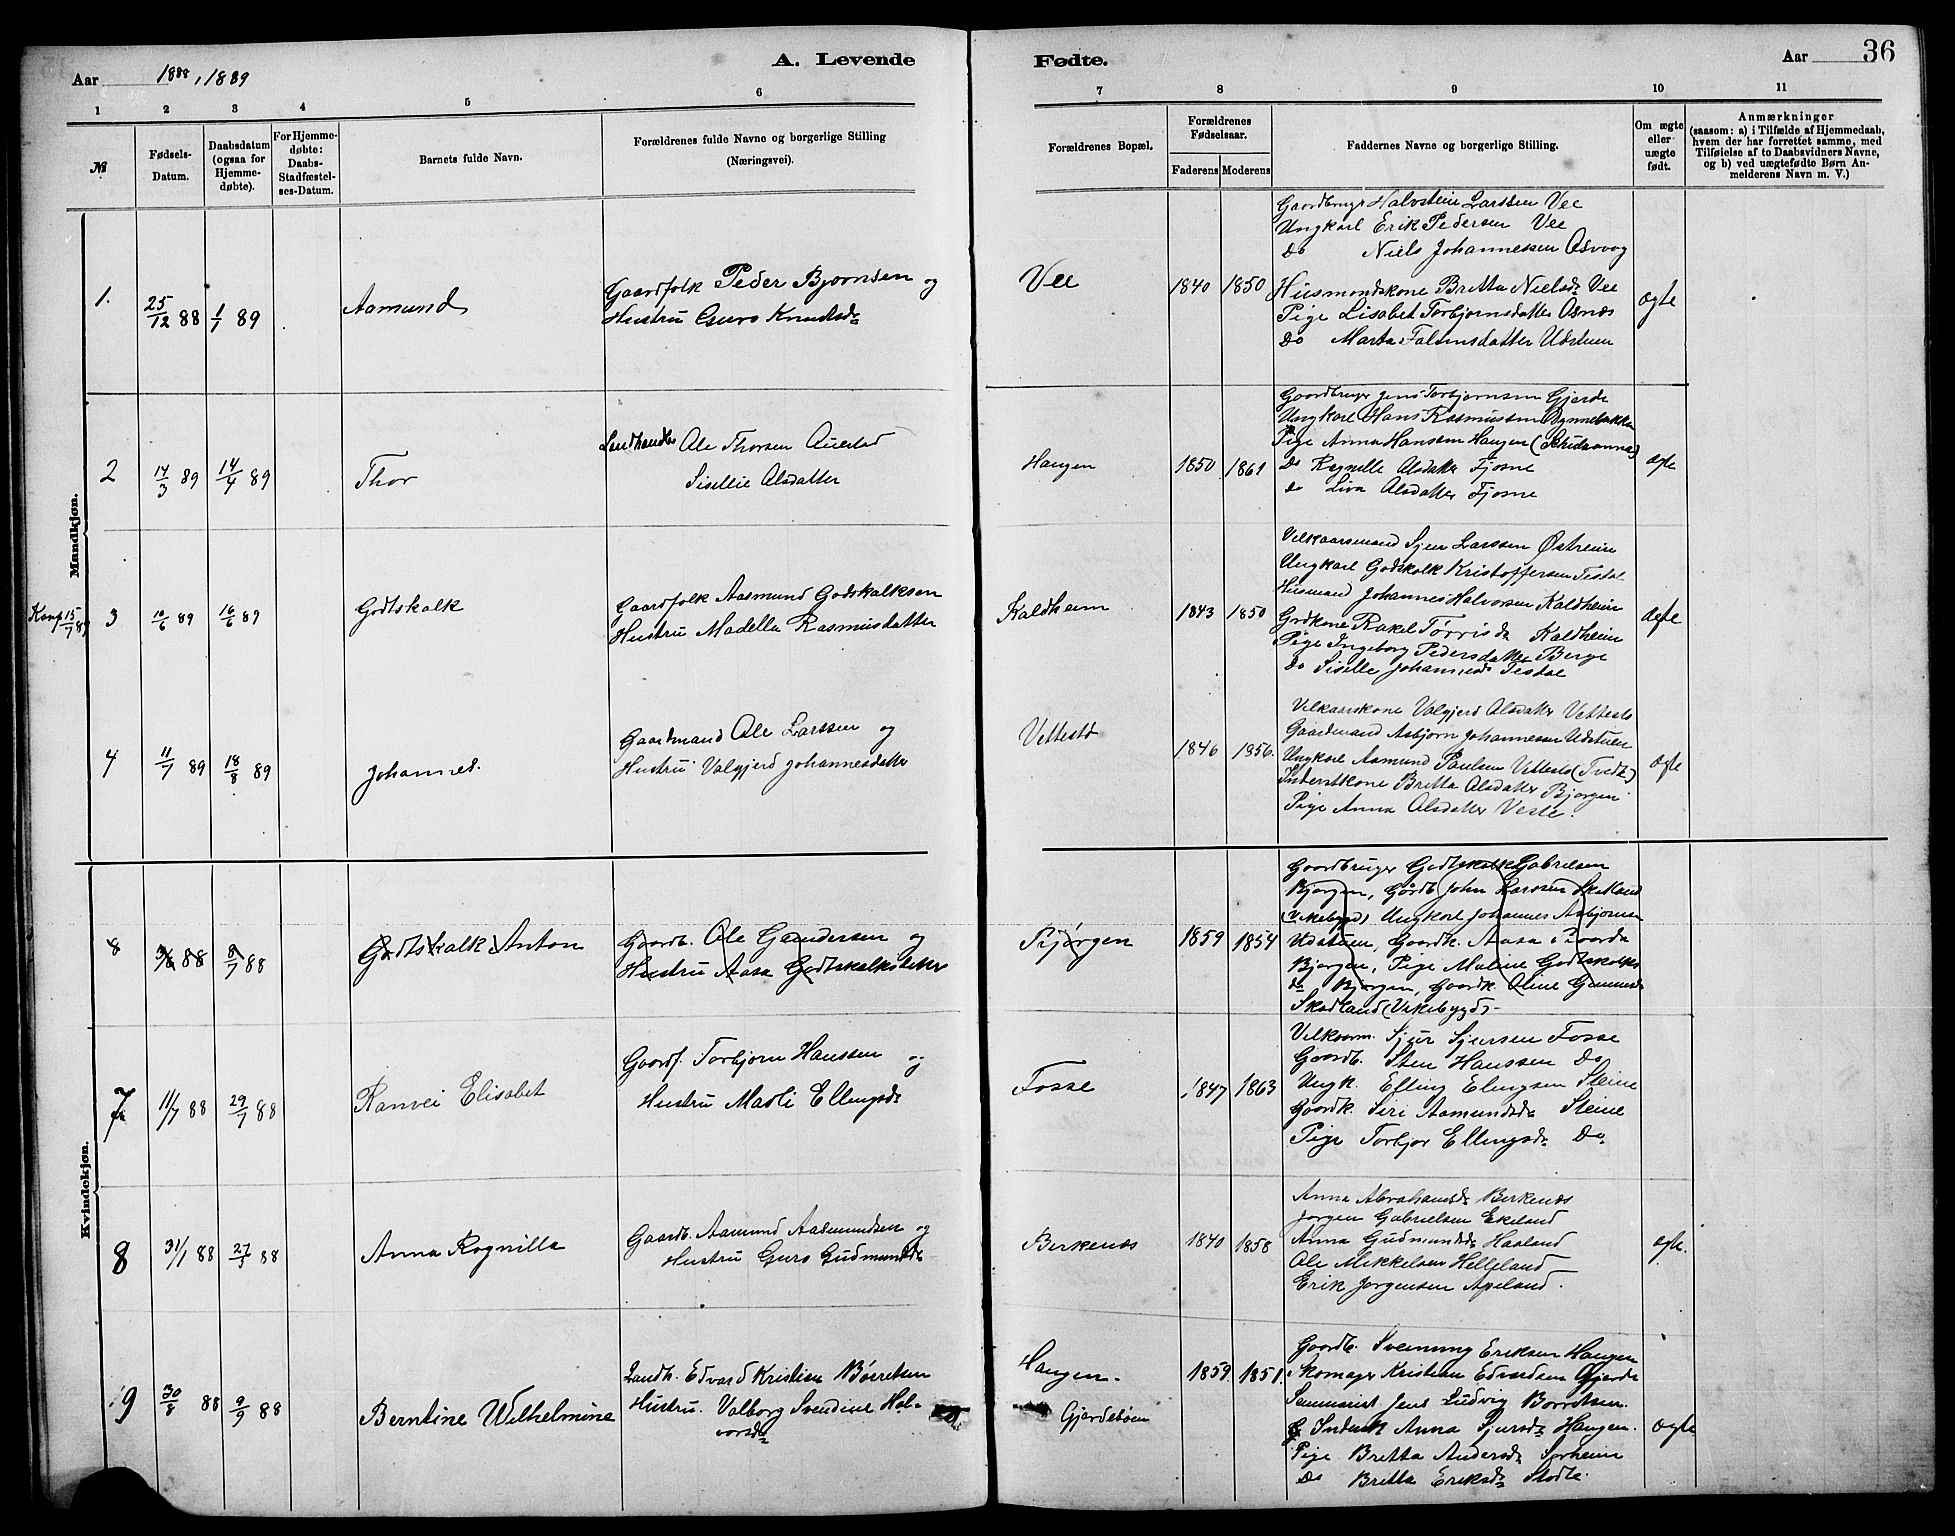 Aar 1888, 1889
A. Levende
Fødte.
Aar
36
1 2 3 4 5 6 7 8 9 10 11
№
Fødsels-Datum.
Daabsdatum (ogsaa for Hjemmedøbte).
For Hjemmedøbte: Daabs-Stadfæstelses-Datum.
Barnets fulde Navn.
Forældrenes fulde Navne og borgerlige Stilling (Næringsvei).
Forældrenes Bopæl.
Forældrenes Fødselsaar.
Faderens Moderens
Faddernes Navne og borgerlige Stilling.
Om ægte eller uægte født.
Anmærkninger
(saasom: a) i Tilfælde af Hjemmedaab, hvem der har forrettet samme, med Tilføielse af to Daabsvidners Navne, og b) ved uægtefødte Børn Anmelderens Navn m. V.)
Mandkjøn.
1. 25/12 88 1/1 89
Aamund
Gaardfolk Peder Bjørnsen og
Hustru Guro Knutsdr
Vee
1840 1850
Gaardbruger Halvstein Larssen Vee
Ungkarl Erik Pedersen Vee
Do Niels Johannessen Osvaag
Husmandskone Britta Nielsdr Vee
Pige Lisabet Torbjørnsdatter Osnæs
Do Marta Udstuen
ægte
2 14/3 89 14/4 89
Thor
Landhandler Ole Thorsen Auestad
Sisellie Olsdatter
Haugen
1850 1861
Gaardbruger Jens Torbjørnsen Gjerde
Ungkarl Hans Rasmussen
Pige Anna Hansen Haugen
Do Ragnille Olsdatter Fjosne
do Liva Olsdatter Fjosne
ægte
Konf 15/7 89
3 10/6 89 16/6 89
Godtskalk
Gaardfolk Aasmund Godskalksen
Hustru Madella Rasmusdatter
Kaldheim
1843 1850
Vilkaarsmand Sjur Larssen Østreim
Ungkarl Godskalk Kristoffersen Tesdal
Husmand Johannes Halvorsen Kaldheim
Grdkone Rakel Tørrisdr Kaldheim
Pige Ingeborg Pedersdatter Berge
Do Siselle Johannesdr Tesdal
ægte
4 11/7 89 18/8 89
Johannes.
Gaardmand Ole Larssen og
Hustru Valgjerd Johannesdatter
Vettestø
1846 1856.
Vilkaarskone Valgjerd Olsdatter Vettestø
Gaardmand Asbjørn Johannessen Udstuen
Ungkarl Aamund Paulsen Vettestø (Tvedt)
Inderstkone Britta Olsdatter Bjørgen
Pige Anna Olsdatter Veste.
ægte
Kvindekjøn.
8 88 8/7 88
Godtskalk Anton
Gaardb. Ole Gundersen og
Hustru Aasa Godtskalksdatter
Bjørgen
1859 1854
Gaardbruger Godtskalk Gabrielsen
Bjørgen, Gårdb John Larssen Skatland
(Vikebygd), Ungkarl Johannes Asbjørnsen
Udstuen, Gaardk. Aasa
Bjørgen, Pige Maline Godtskalks
dr Bjørgen, Gaardk Oline Gunnersdr
Skatland (Vikebygd)
7 11/7 88 29/7 88
Ranvei Elisabet
Gaardf. Torbjørn Hanssen og
Hustru Marli Ellingsdr
Fosse
1847 1863
Vilkaarm. Sjur Sjursen Fosse
Gaardb. Sten Hanssen Do
Ungk. Elling Elingsen Steine
Gaardk. Siri Aamundsdr Steine
Pige Torbjør Ellingsdr Do
8 31/1 88 27/3 88
Anna Rognilla
Gaardb. Aamund Aasmundsen og
Hustru Guro Gudmundsdr
Berkenæs
1840 1858
Anna Abrahamsdr Berkenæs
Jørgen Gabrielsen Ekeland
Anna Gudmundsdr Haaland
Ole Mikkelsen Helleland
Erik Jørgensen Apeland.
ægte.
9 30/8 88 9/9 88
Berntine Wilhelmine
Landh. Edvard Kristian Børretsen
Hustru. Valborg Svendine Hal-
vorsdr
Haugen.
Gjerdebøen
1859. 1851.
Gaardb. Svenung Eriksen Haugen
Skomager Kristian Edvardsen Gjerde
Seminarist Jens Ludvig Børretsen.
Inderstk Anna Sjursdr Haugen.
Pige Britta Andersdr Sørheim
Do Britta Eriksdr Stødle.
ægte